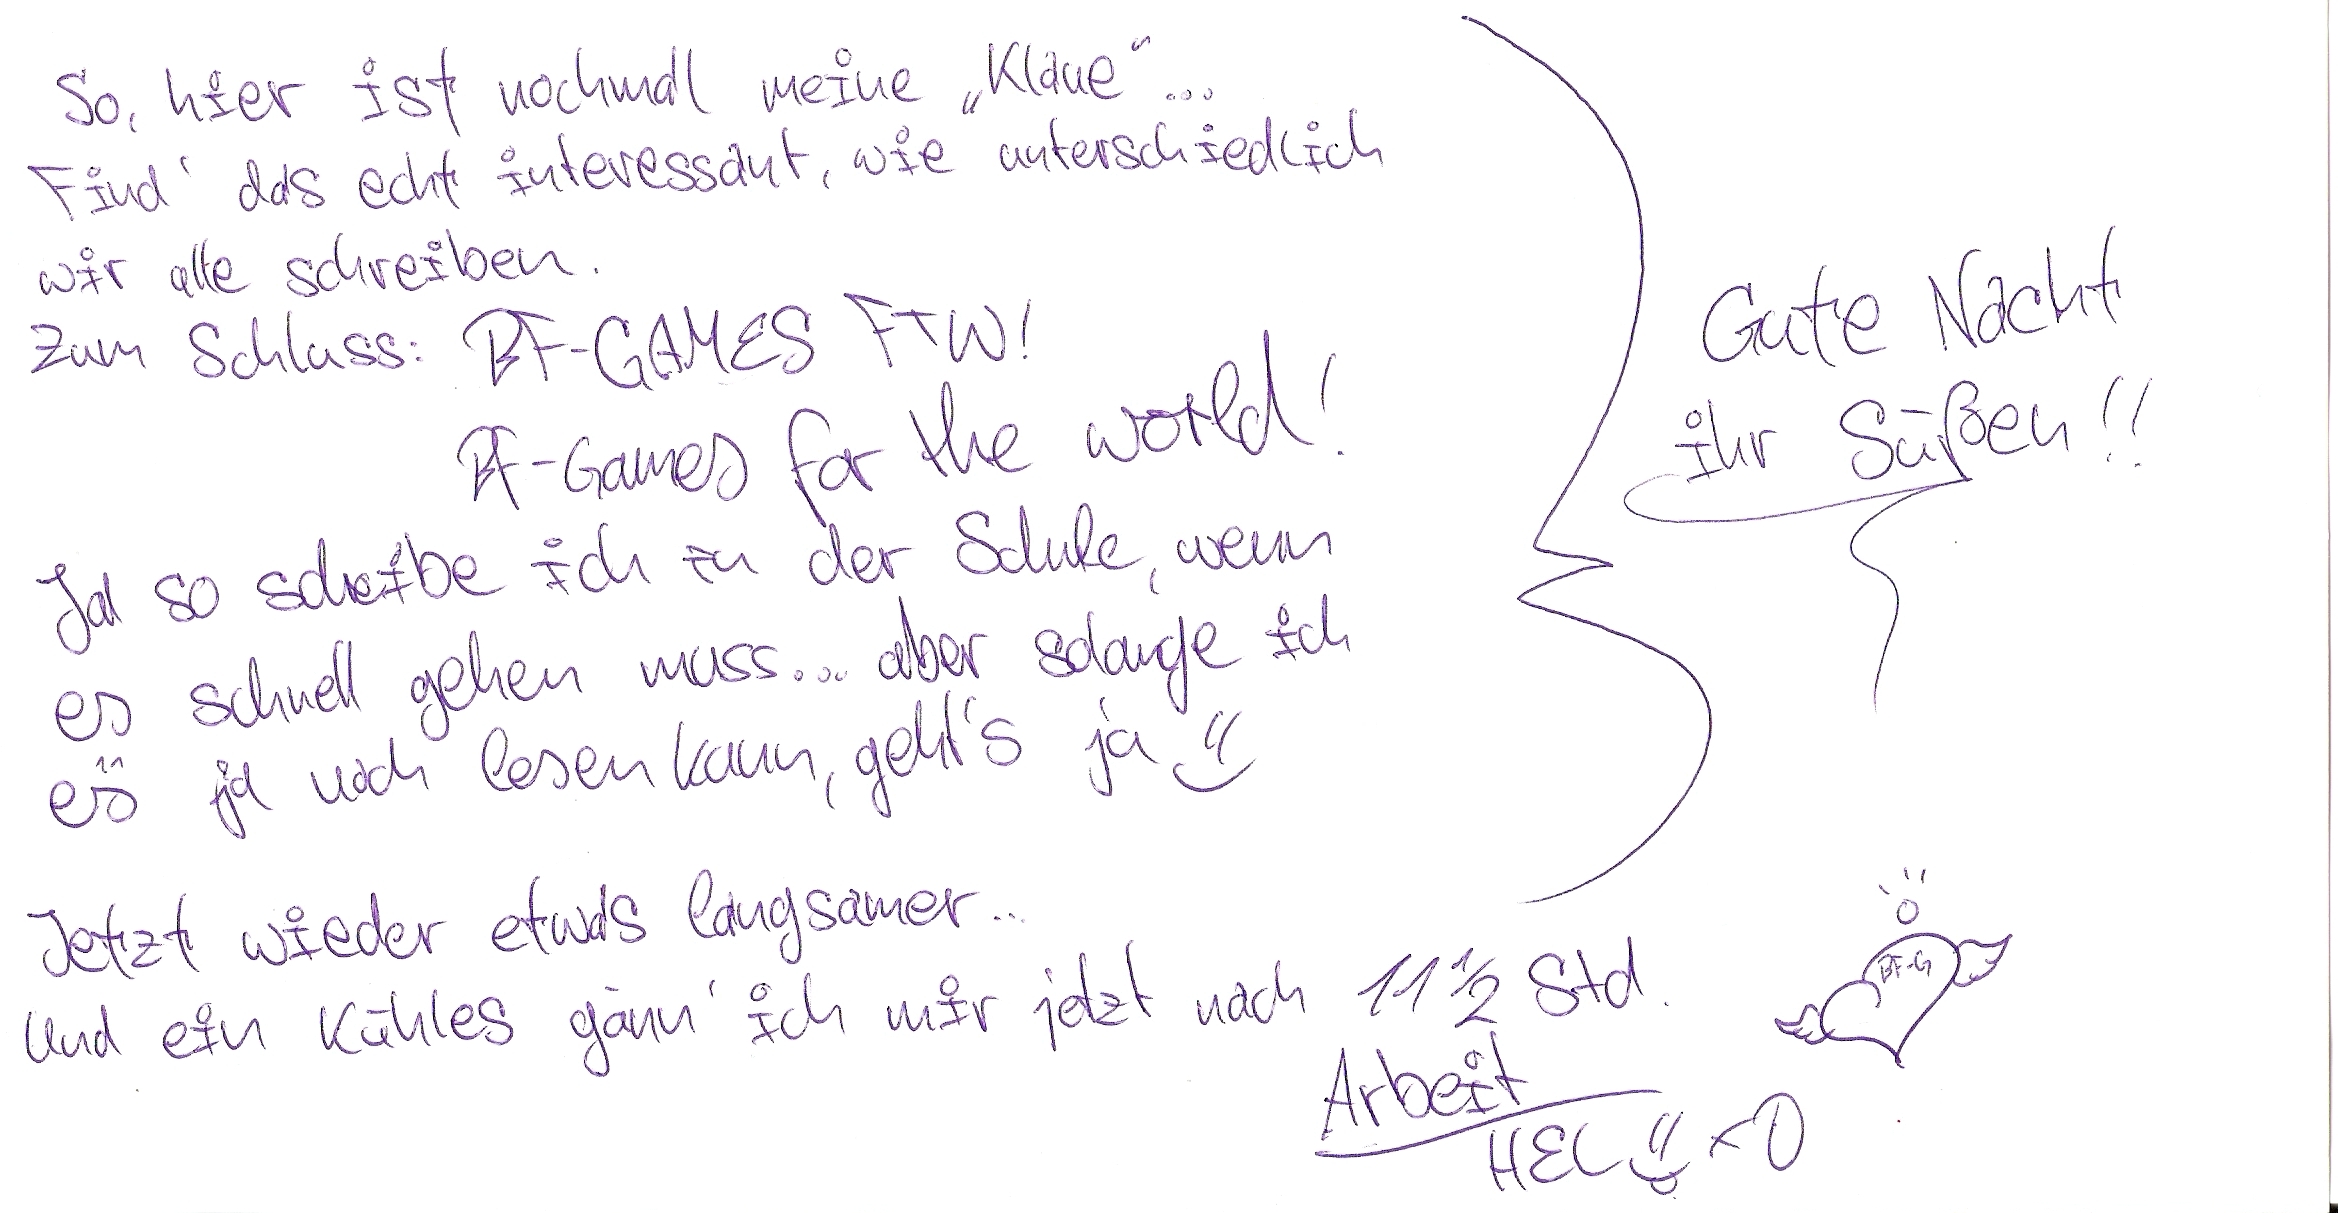 So, hier ist nochmal meine „Klaue“...
Find' das echt interessant, wie unterschiedlich
wir alle schreiben.
Zum Schluss: BF-GAMES FTW!
BF-Games for the world!
Ja so schreibe ich in der Schule, wenn
es schnell gehen muss... aber solange ich
es ja noch lesen kann, geht's ja
Jetzt wieder etwas langsamer...
Und ein Kühles gönn' ich mir jetzt nach 11 1/2 Std.
Arbeit
xD
Gute Nacht
ihr Süßen!!
BF-G